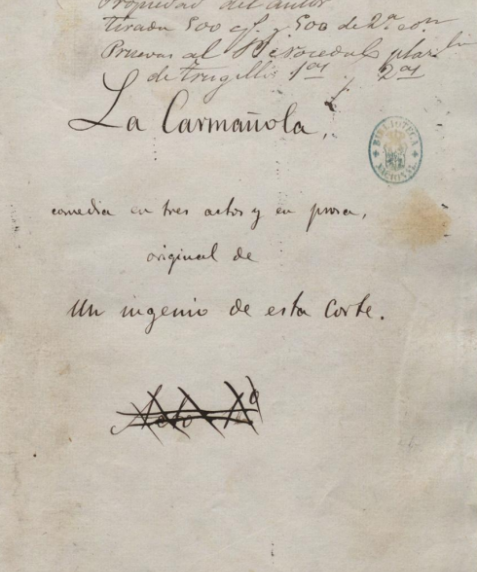 Propiedad del autor
tirada 500 ejs. y 500 de 2ª con
Pruevas al
de trugillo 1as y 2as
La Carmañola,
BIBLIOTECA NACIONAL
comedia en tres actos y en prosa,
original de
Un ingenio de esta Corte.
Acto 1º